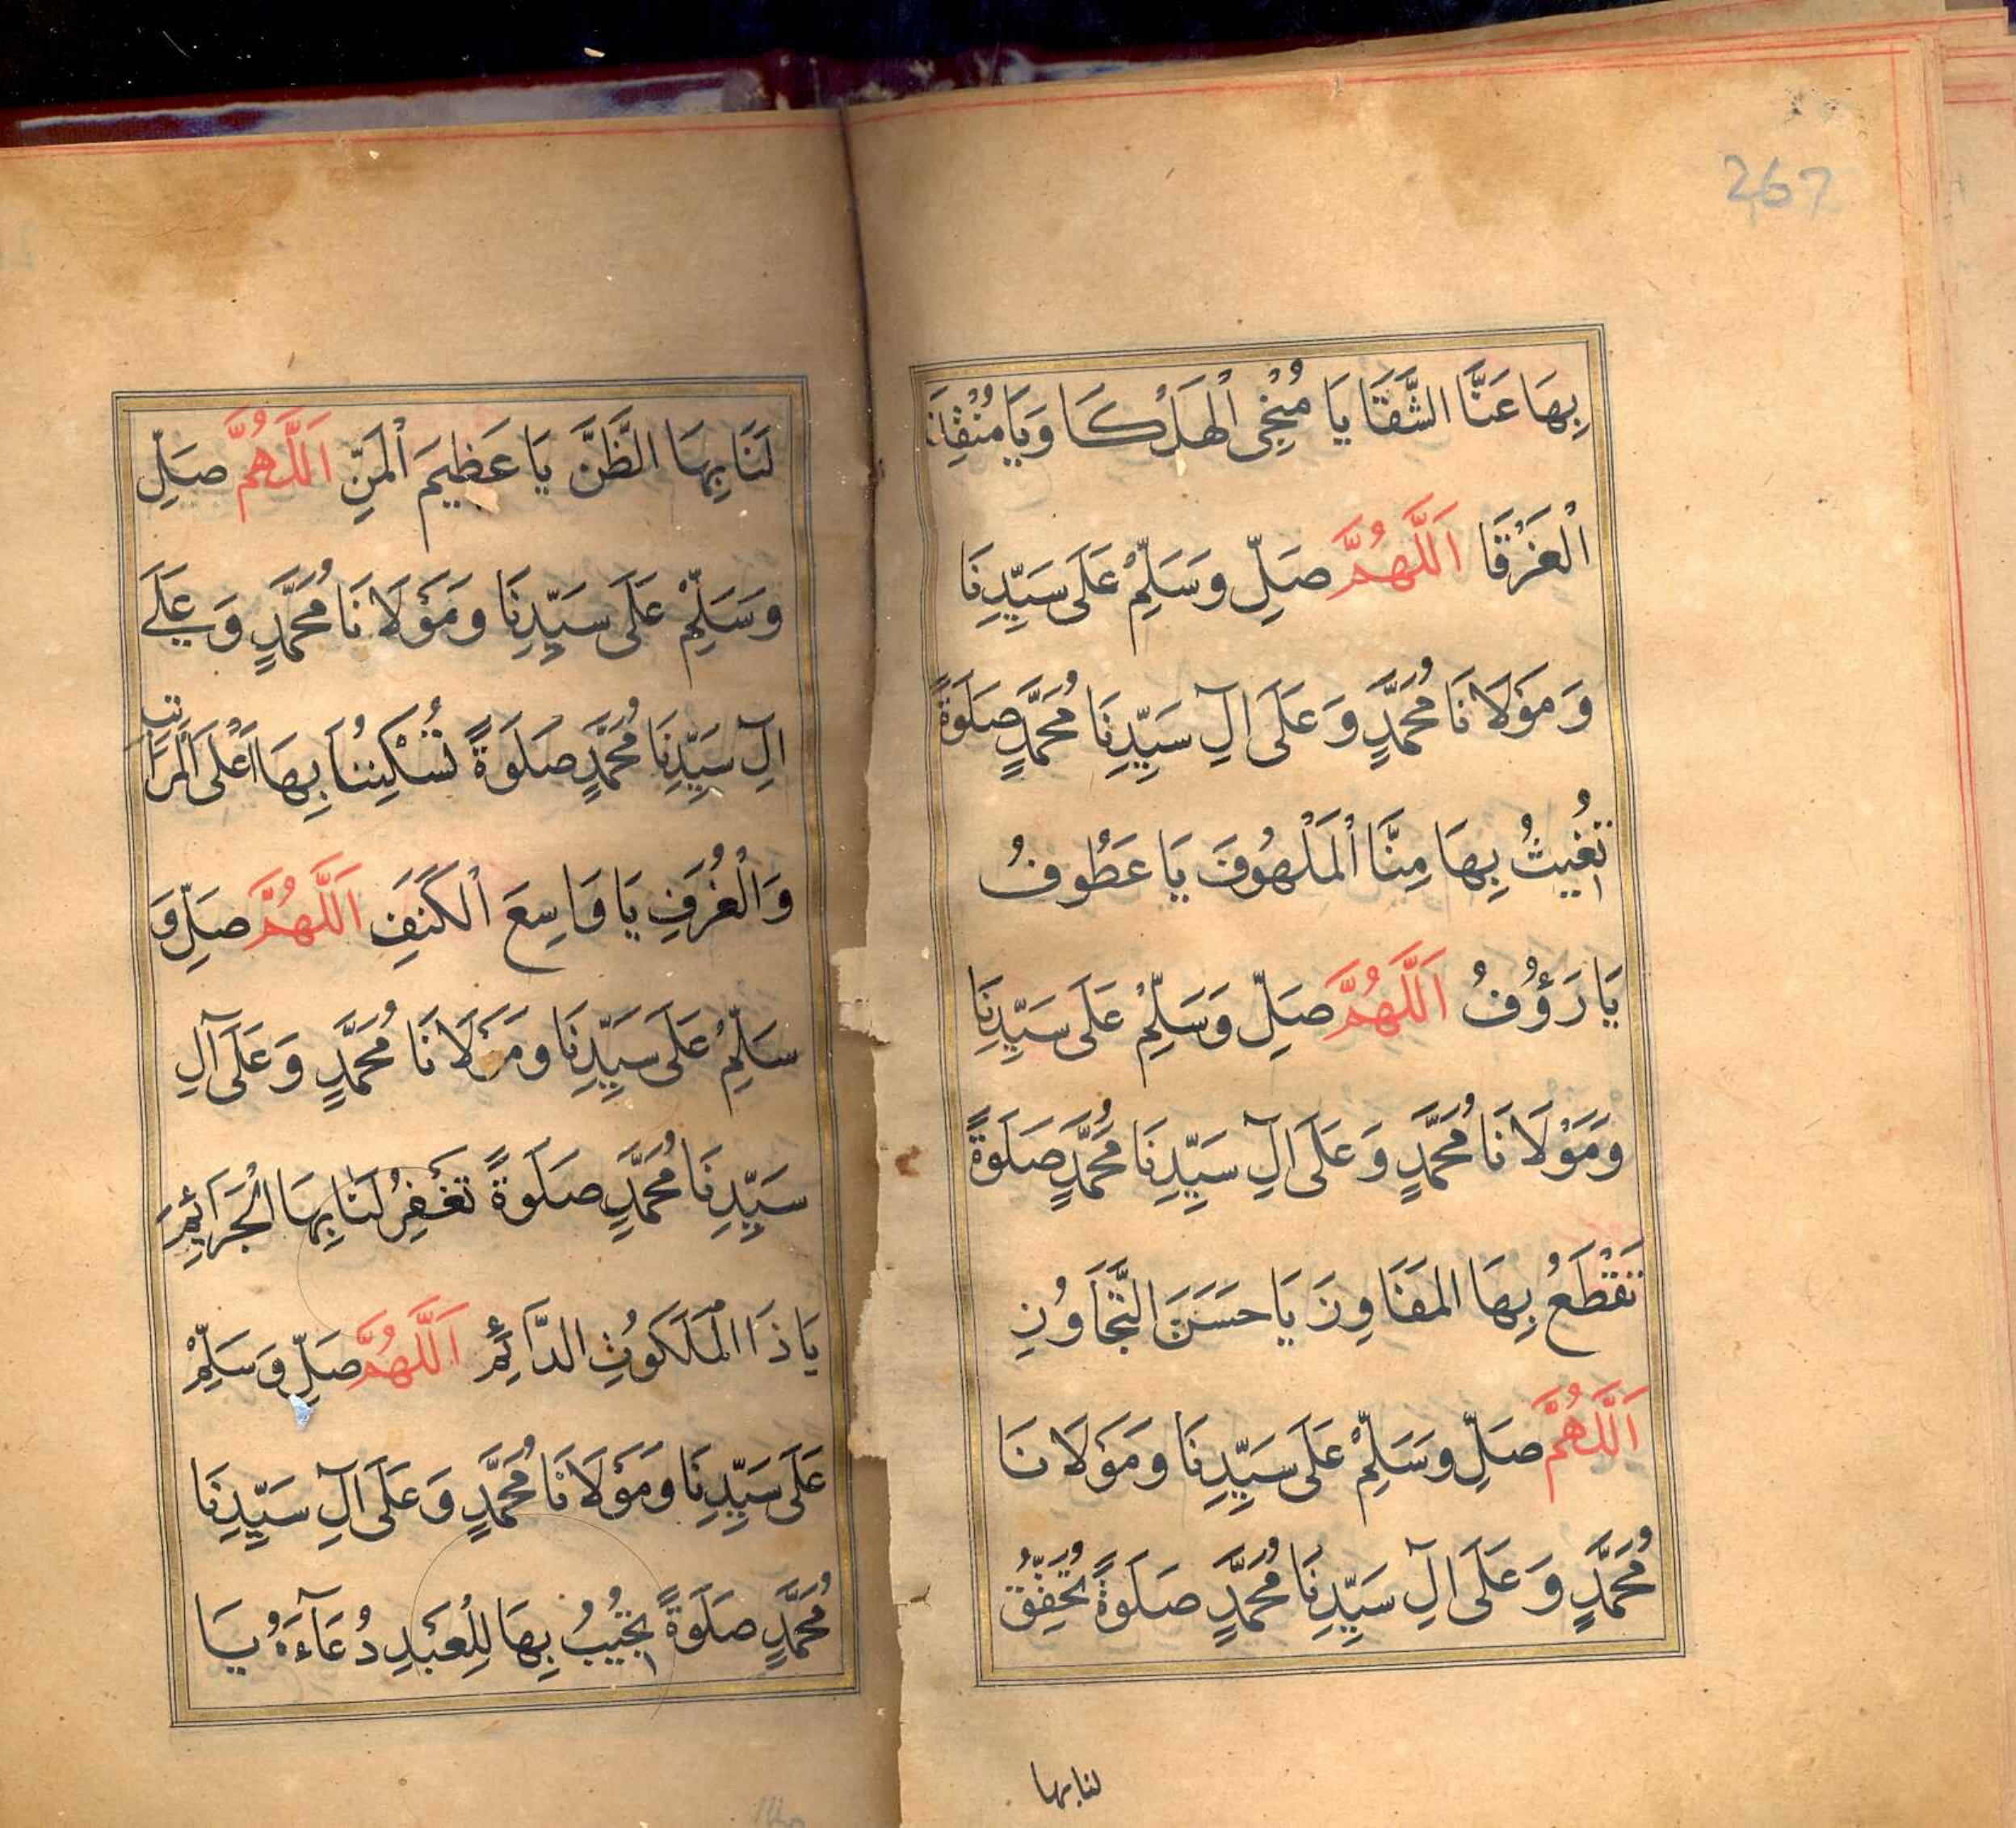 267
بِهَا عَنَّا الشَّقَا يَا مُنْجِي الْهَلْكَا وَيَا مُنْقِذَ
الْغَرْقَا اَللَّهُمَّ صَلِّ وَسَلِّمْ عَلَى سَيِّدِنَا
وَمَوْلَانَا مُحَمَّدٍ وَعَلَى آلِ سَيِّدِنَا مُحَمَّدٍ صَلَوةً
تُغِيثُ بِهَا مِنَّا الْمَلْهُوفَ يَا عَطُوفُ
يَا رَؤُفُ اَللَّهُمَّ صَلِّ وَسَلِّمْ عَلَى سَيِّدِنَا
وَمَوْلَانَا مُحَمَّدٍ وَعَلَى آلِ سَيِّدِنَا مُحَمَّدٍ صَلَوةً
تَقْطَعُ بِهَا المَفَاوِزَ يَا حَسَنَ التَّجَاوُزِ
اَللَّهُمَّ صَلِّ وَسَلِّمْ عَلَى سَيِّدِنَا وَمَوْلَانَا
مُحَمَّدٍ وَعَلَى آلِ سَيِّدِنَا مُحَمَّدٍ صَلَوةً تُحَقِّقُ
لنا بها
لَنَا بِهَا الظَّنَّ يَا عَظِيمَ الْمَنِّ اَللَّهُمَّ صَلِّ
وَسَلِّمْ عَلَى سَيِّدِنَا وَمَوْلَانَا مُحَمَّدٍ وَعَلَے
آلِ سَيِّدِنَا مُحَمَّدٍ صَلَوةً تُسْكِنُنَا بِهَا اَعْلَى الْمَرَاتِبِ
وَالْغُرَفِ يَا وَاسِعَ الْكَنَفِ اَللَّهُمَّ صَلِّ وَ
سَلِّمْ عَلَى سَيِّدِنَا وَمَوْلَانَا مُحَمَّدٍ وَعَلَى آلِ
سَيِّدِنَا مُحَمَّدٍ صَلَوةً تَغْفِرُ لَنَا بِهَا الْجَرَائِمَ
يَا ذَا الْمَلَكُوتِ الدَّائِمِ اَللَّهُمَّ صَلِّ وَسَلِّمْ
عَلَى سَيِّدِنَا وَمَوْلَانَا مُحَمَّدٍ وَعَلَى آلِ سَيِّدِنَا
مُحَمَّدٍ صَلَوةً تُجِيبُ بِهَا لِلْعَبْدِ دُعَآءَهُ يَا